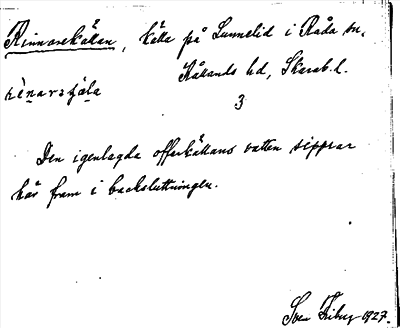 Rinnarekällan, källa på Lunnelid i Råda sn,
Kållands hd, Skarab.l.
3
Den igenlagda offerkällans vatten sipprar
här fram i backsluttningen.
Sven 1927.